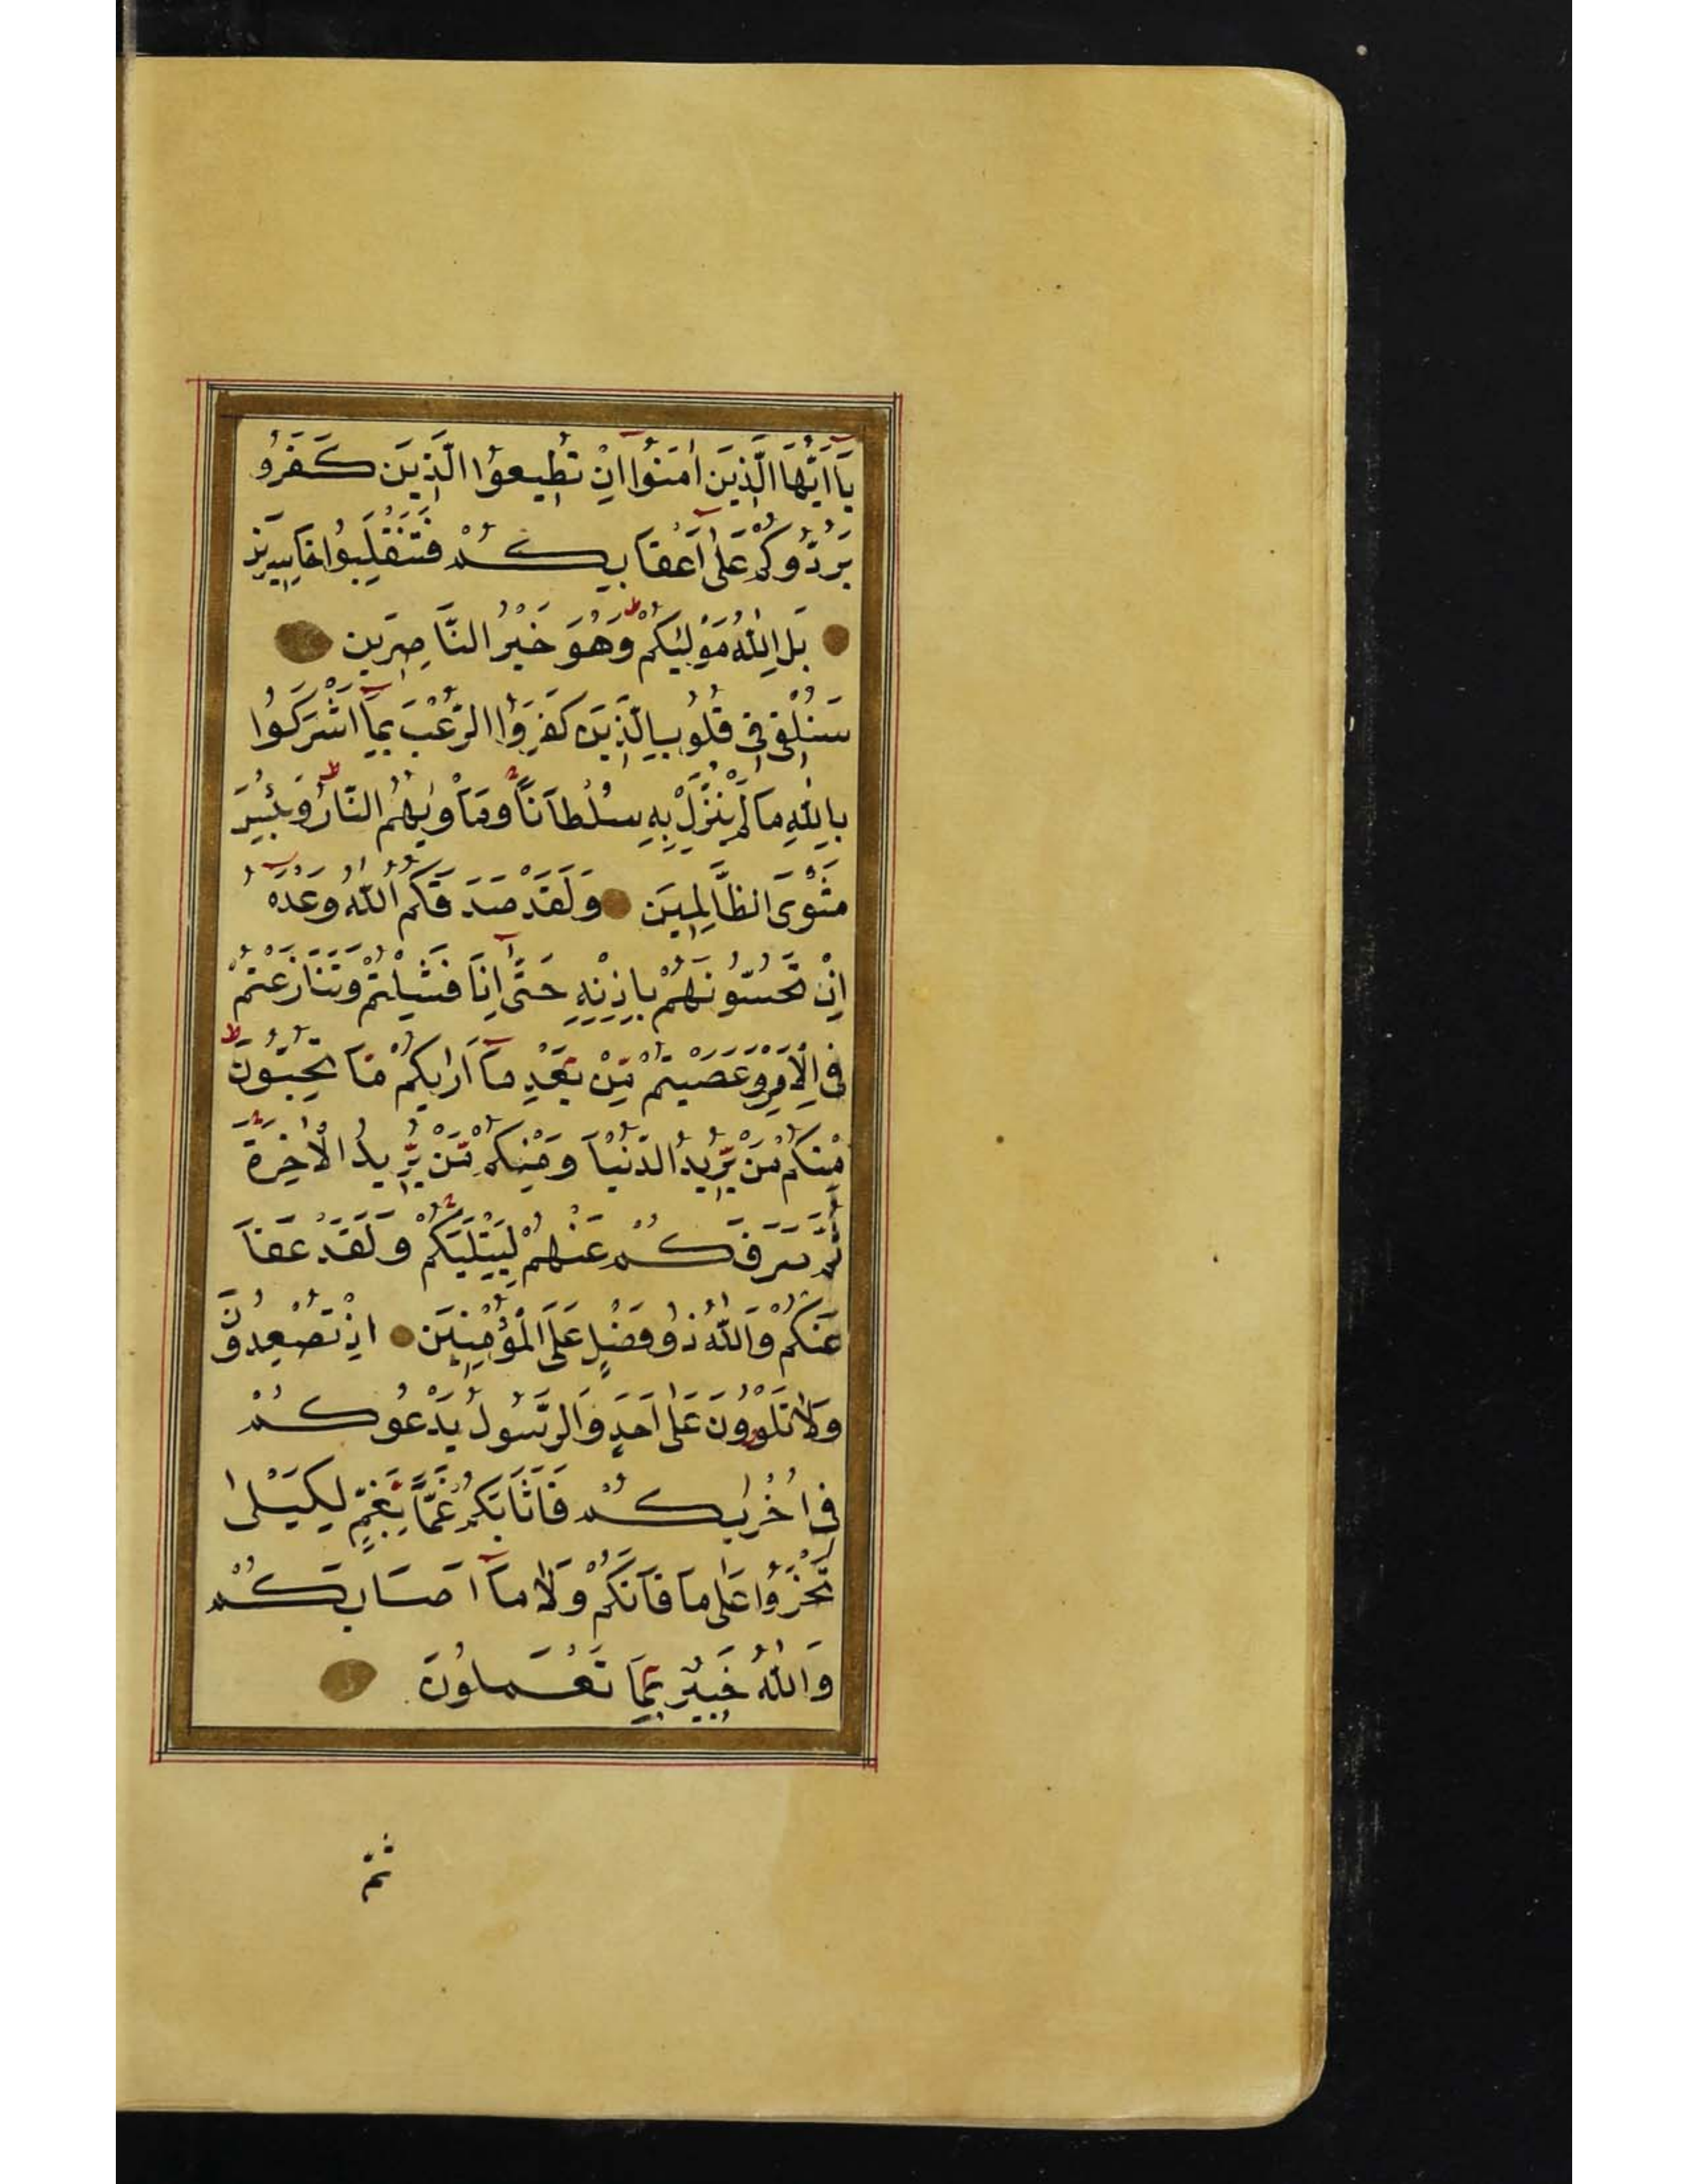 يَآ اَيُّهَا الَّذِينَ اٰمَنُوٓا اِنْ تُطِيعُوا الَّذِينَ كَفَرُو
يَرُدُّوكُمْ عَلٰٓى اَعْقَابِكُمْ فَتَنْقَلِبُوا خَاسِرِينَ
بَلِ اللّٰهُ مَوْلٰيكُمْ وَهُوَ خَيْرُ النَّاصِرِينَ
سَنُلْقِى فِى قُلُوبِ الَّذِينَ كَفَرُوا الرُّعْبَ بِمَآ اَشْرَكُوا
بِاللّٰهِ مَا لَمْ يُنَزِّلْ بِهِ سُلْطَانًا وَمَاْوٰيهُمُ النَّارُ وَبِئْسَ
مَثْوَى الظَّالِمِينَ وَلَقَدْ صَدَقَكُمُ اللّٰهُ وَعْدَهُٓ
اِذْ تَحُسُّونَهُمْ بِاِذْنِهِ حَتّٰٓى اِذَا فَشِلْتُمْ وَتَنَازَعْتُمْ
فِى الْاَمْرِ وَعَصَيْتُمْ مِّنْ بَعْدِ مَآ اَرٰيكُمْ مَّا تُحِبُّونَ
مِنْكُمْ مَّنْ يُّرِيدُ الدُّنْيَا وَمِنْكُمْ مَّنْ يُّرِيدُ الْاٰخِرَةَ
ثُمَّ صَرَفَكُمْ عَنْهُمْ لِيَبْتَلِيَكُمْ وَلَقَدْ عَفَا
عَنْكُمْ وَاللّٰهُ ذُو فَضْلٍ عَلَى الْمُؤْمِنِينَ اِذْ تُصْعِدُونَ
وَلَا تَلْوُونَ عَلٰٓى اَحَدٍ وَالرَّسُولُ يَدْعُوكُمْ
فِى اُخْرٰيكُمْ فَاَثَابَكُمْ غَمًّا بِغَمٍّ لِكَيْلَا
تَحْزَنُوا عَلٰى مَا فَاتَكُمْ وَلَا مَآ اَصَابَكُمْ
وَاللّٰهُ خَبِيرٌ بِمَا تَعْمَلُونَ
ثُمَّ